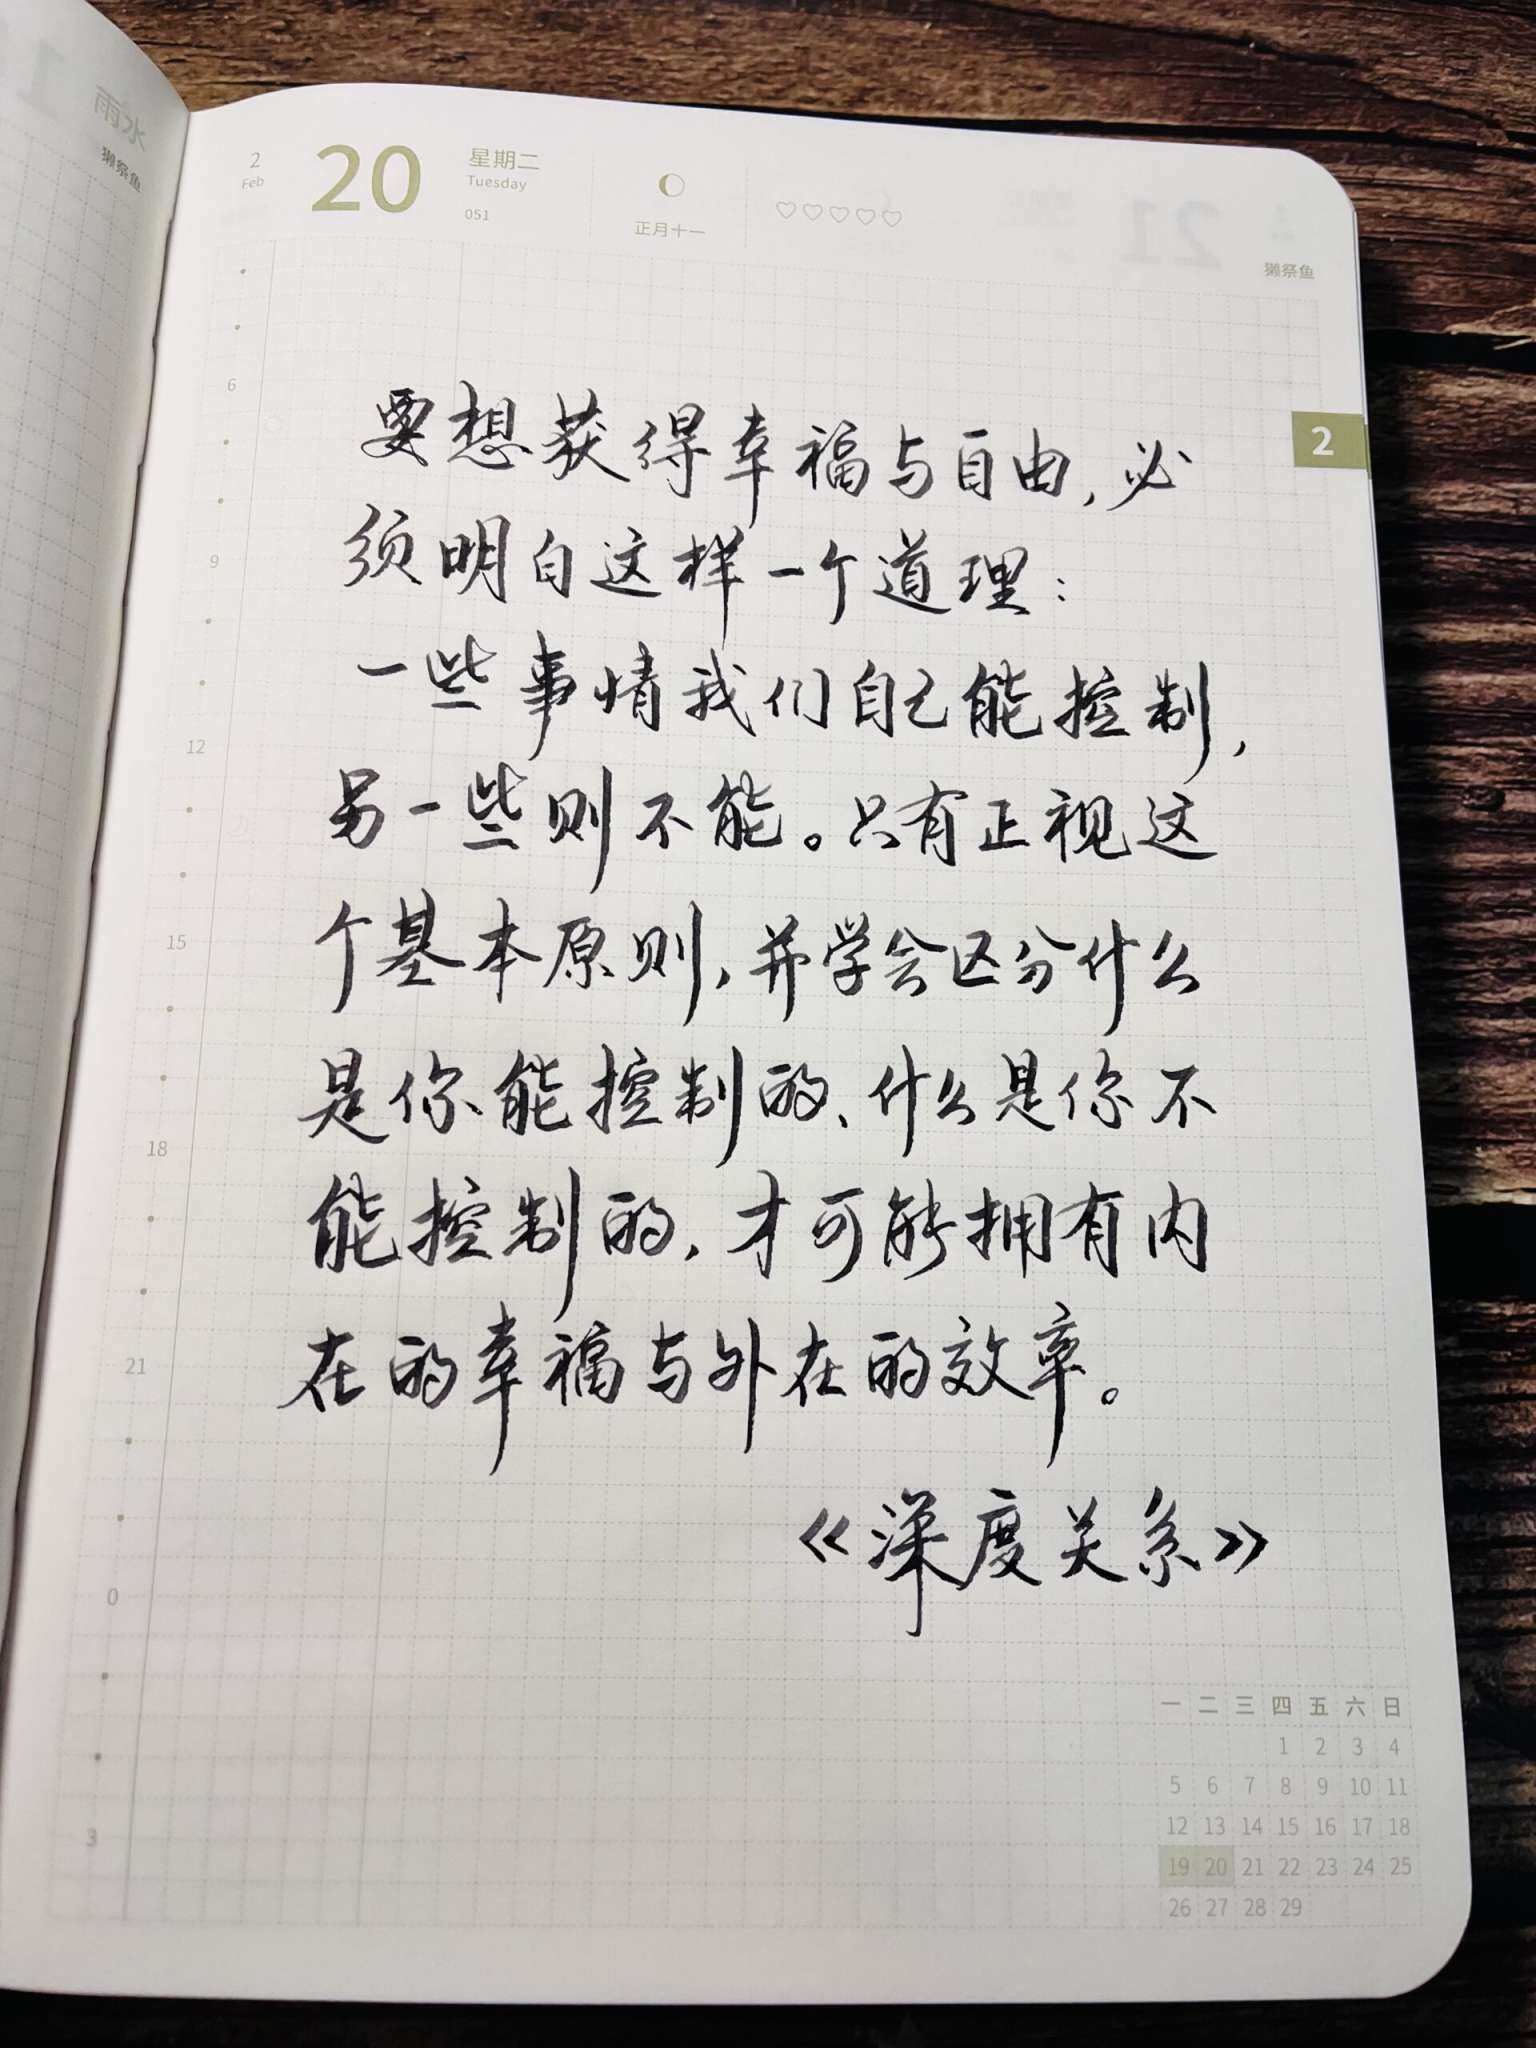 雨水
獭祭鱼
2
Feb
20
星期二
Tuesday
051
正月十一
21
獭祭鱼
2
要想获得幸福与自由,必
须明白这样一个道理:
一些事情我们自己能控制,
另一些则不能。只有正视这
个基本原则,并学会区分什么
是你能控制的、什么是你不
能控制的,才可能拥有内
在的幸福与外在的效率。
《深度关系》
6
9
12
15
18
21
0
3
一 二 三 四 五 六 日
1 2 3 4
5 6 7 8 9 10 11
12 13 14 15 16 17 18
19 20 21 22 23 24 25
26 27 28 29